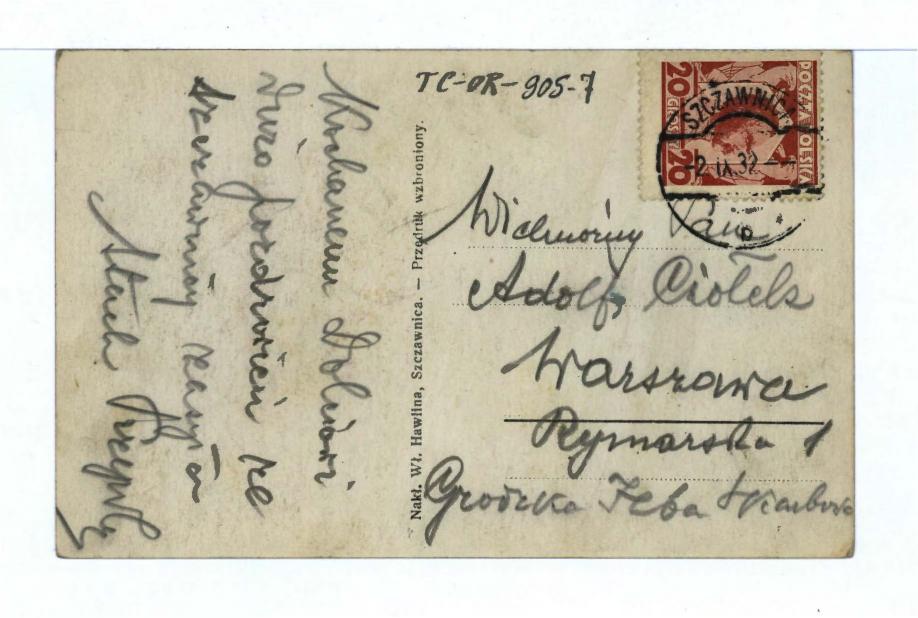 Kochanemu Dolkowi
dużo pozdrowień ze
Szczawnicy zasyła
Stach
Nakł. Wł. Hawlina, Szczawnica. — Przedruk wzbroniony.
TC-OR-905-7
20 GROSZY 20
POCZTA POLSKA
SZCZAWNICA
-2 IX.32
Wielmożny Pan
Adolf Ciołek
Warszawa
Rymarska 1
Grodzka Izba Skarbowa